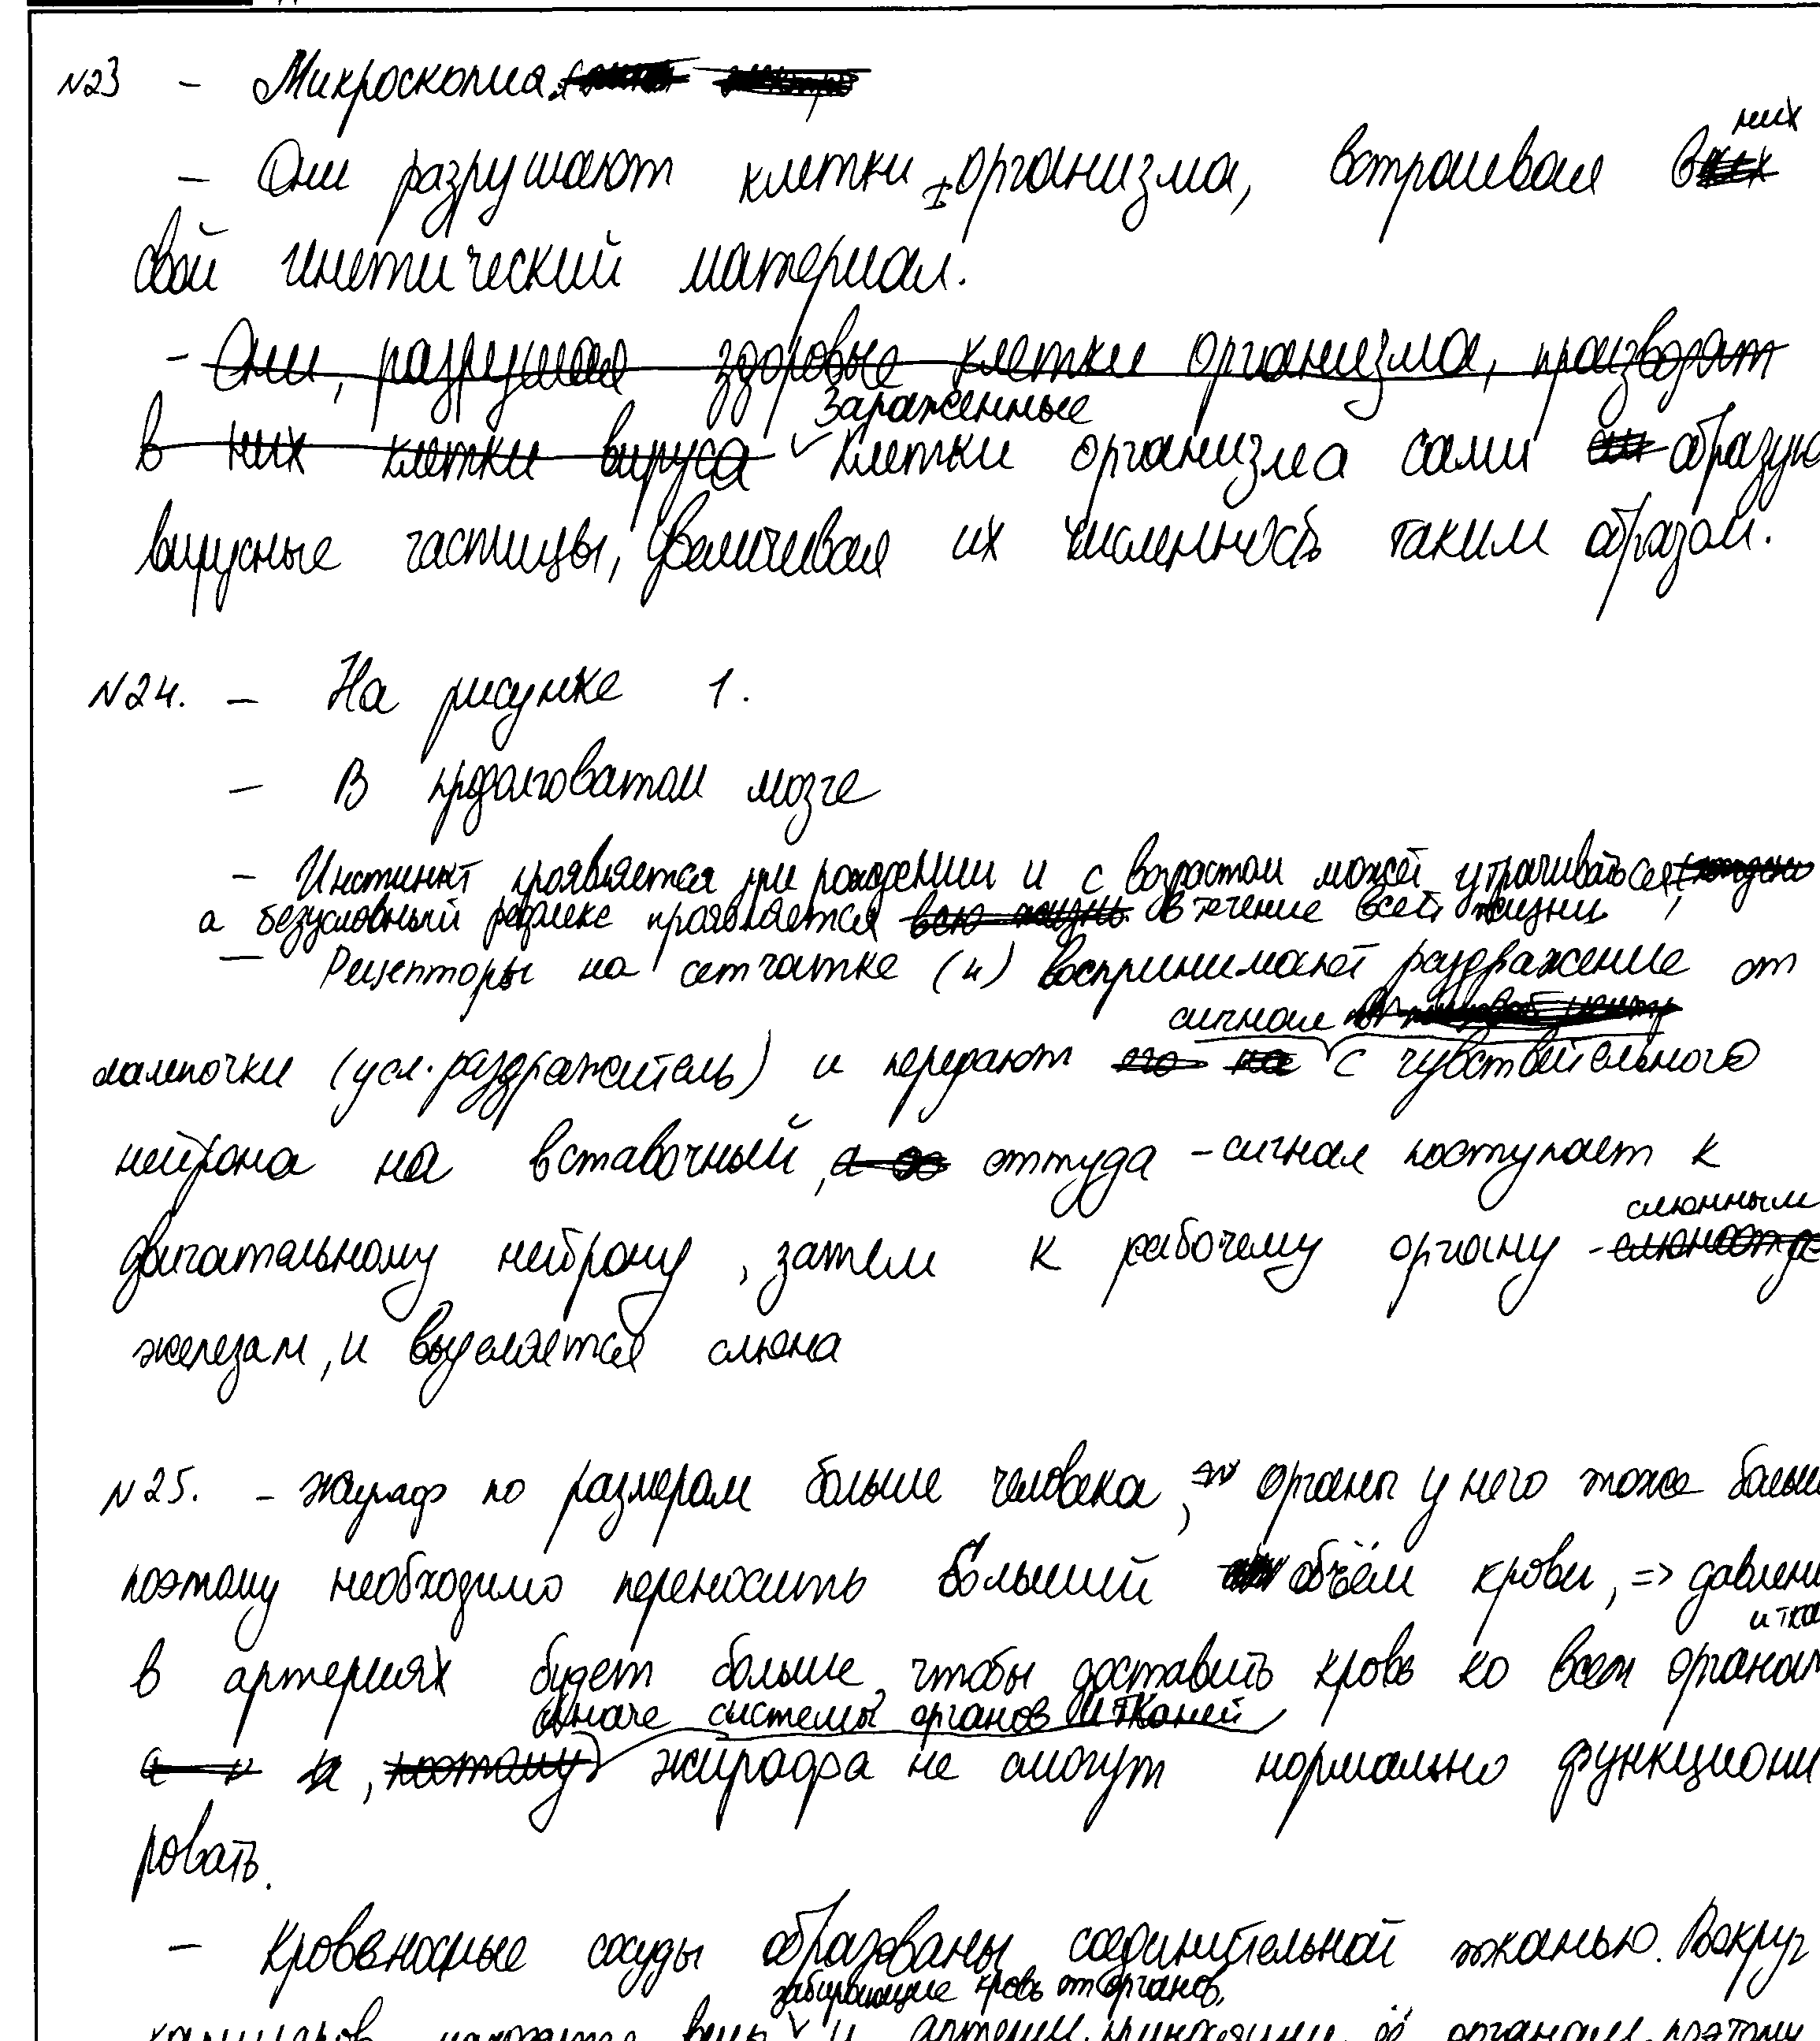 N23 - Микроскопия.
- Они разрушают клетки организма, встраивая в них
свой гинетический материал.
- Они, разрушая здоровые клетки организма, производят
в них клетки вируса зараженные клетки организма сами образую
вирусные частицы, увеличивая их численность таким образом.
N24. - На рисунке 1.
- В продолговатом мозге
- Инстинкт проявляется при рождении и с возрастом может утрачиваться,
а безусловный рефлекс проявляется всю жизнь в течение всей жизни
- Рецепторы на сетчатке (н) воспринимают раздражение от
лампочки (усл. раздражитель) и передают его на сигнал с чувствительного
нейрона на вставочный, оттуда - сигнал поступает к
двигательному нейрону, затем к рабочему органу - слюнным
железам, и выделяется слюна
N25. - Жираф по размерам больше человека, органы у него тоже больш
поэтому необходимо переносить больший объём крови, => давлени
в артериях будет больше, чтобы доставить кровь ко всем органам и тка
, поэтому иначе системы органов и тканей жирафа не смогут нормально функциони
ровать.
- Кровеносные сосуды образованы соединительной тканью. Вокруг
забирающие кровь от органов,